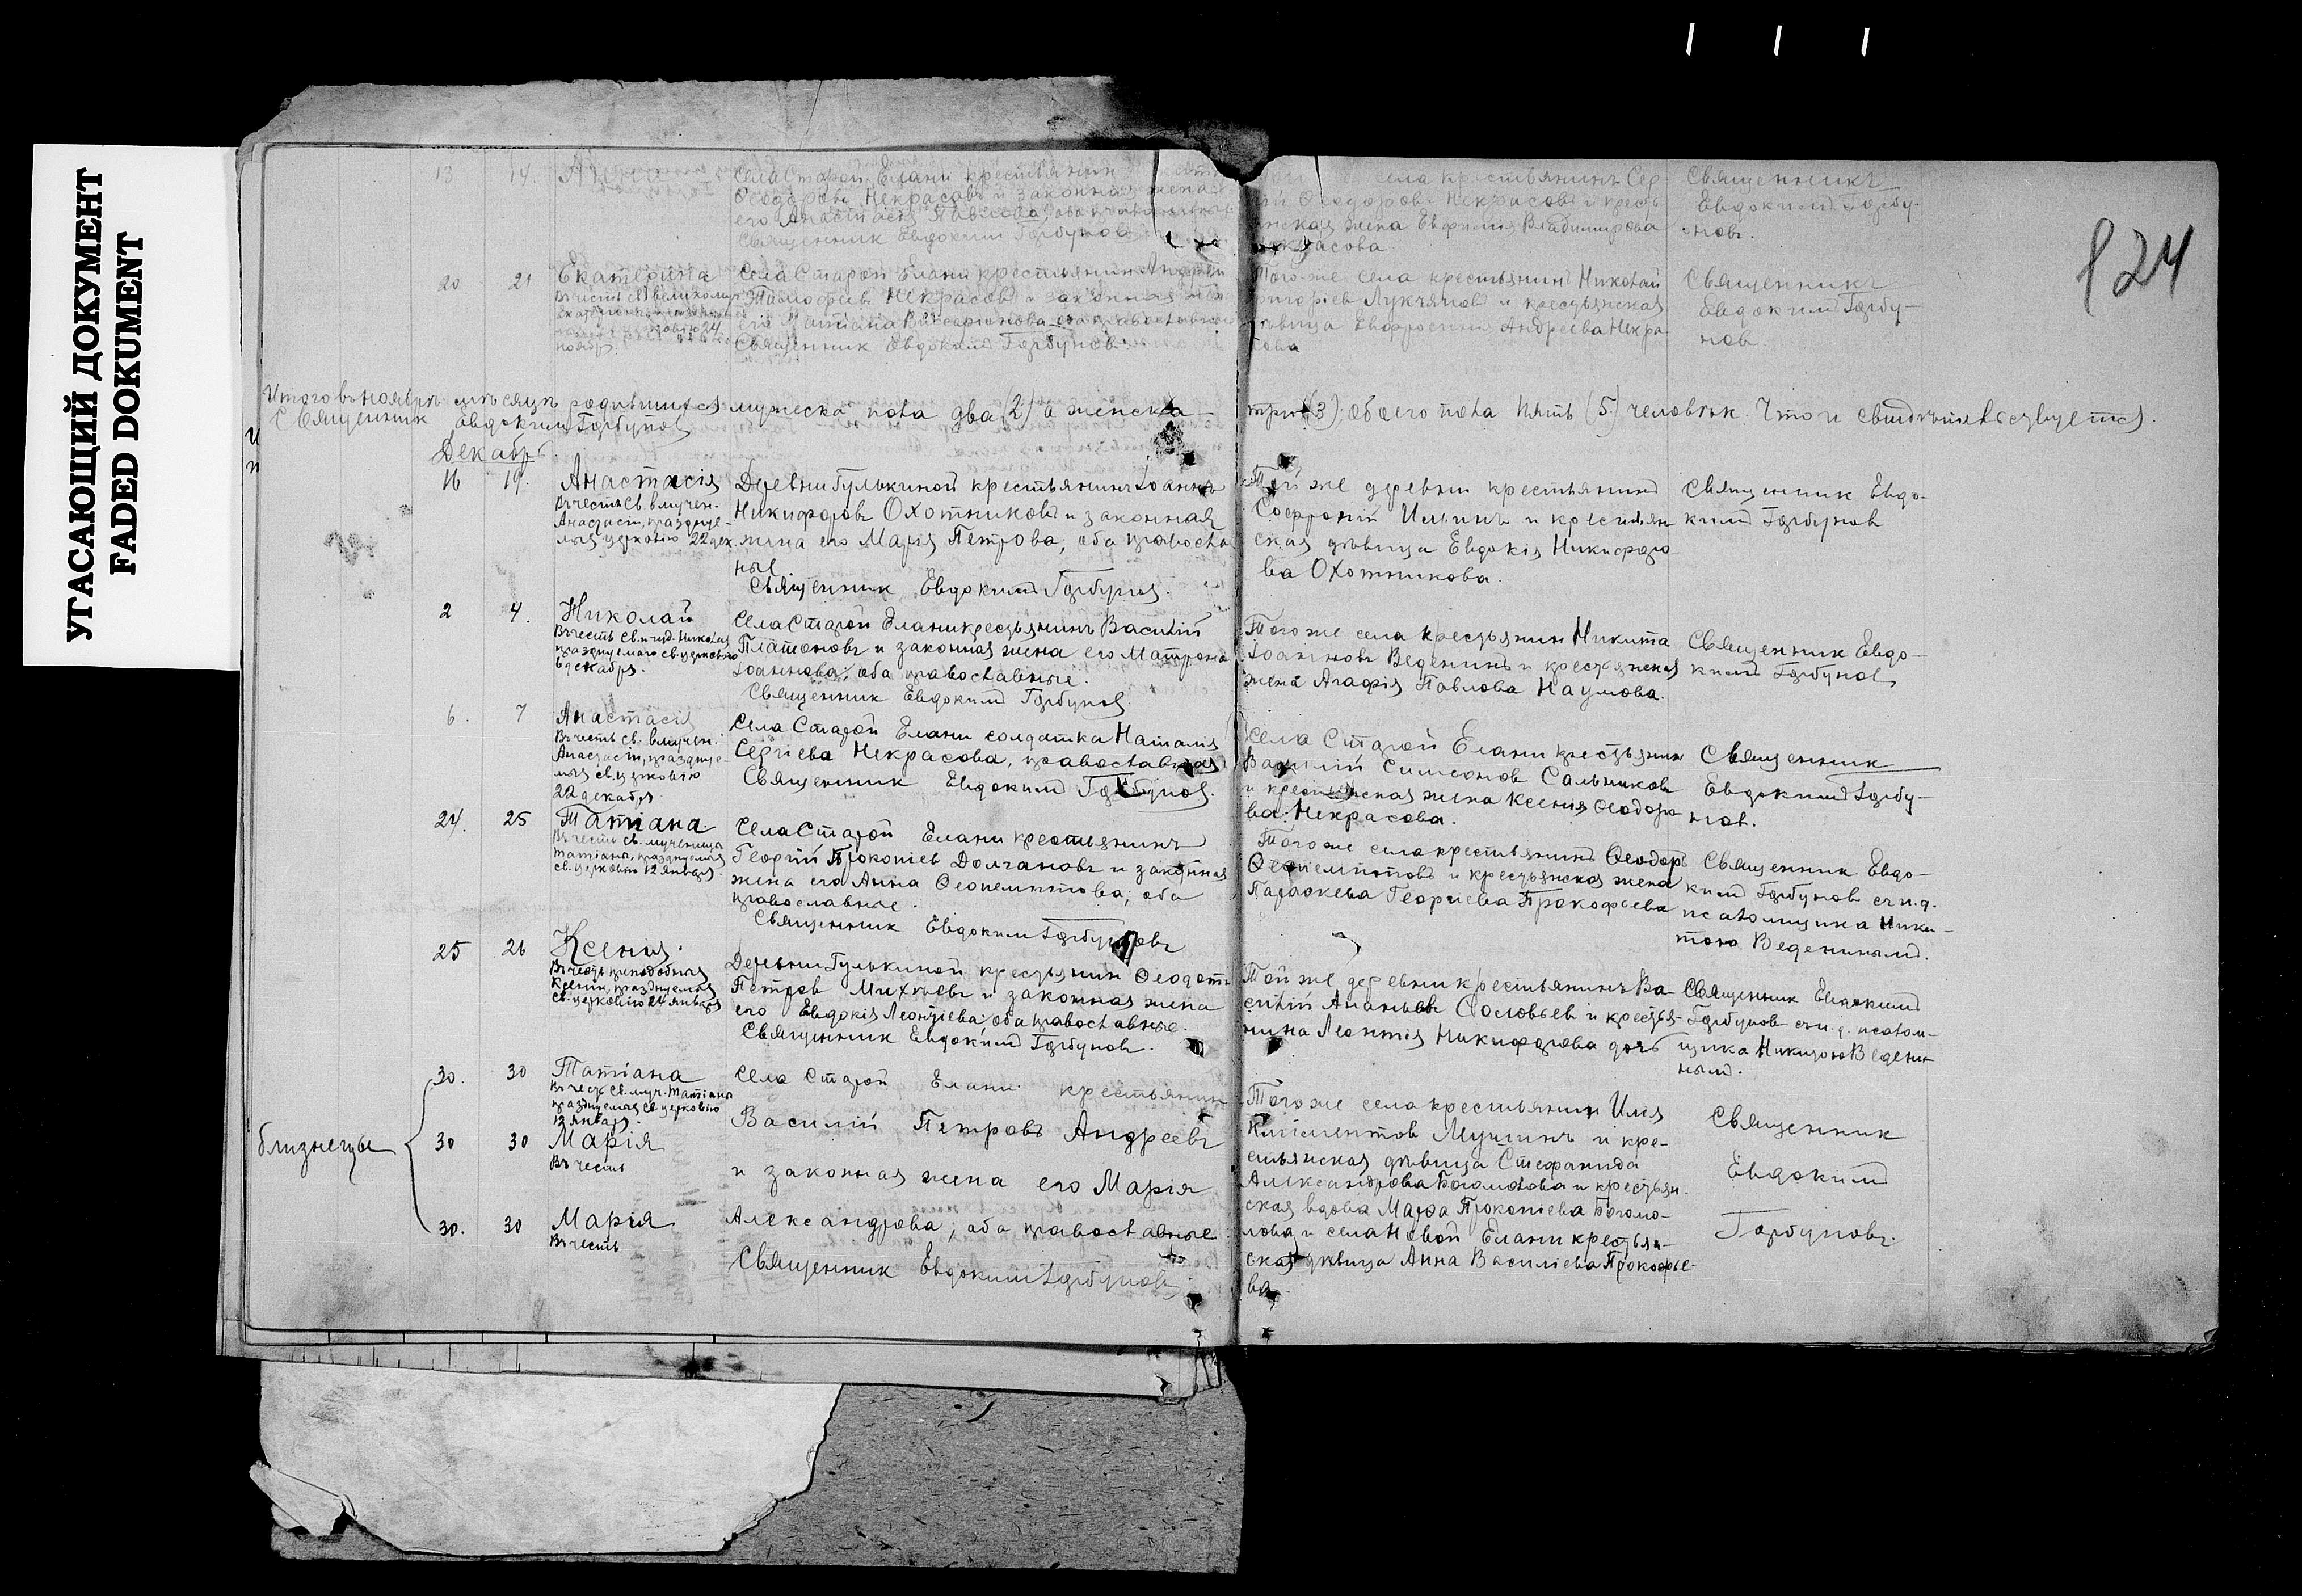 УГАСАЮЩИЙ ДОКУМЕНТ
FADED DOKUMENT
124
13 14. Анна
Села Старой Елани крестьянин
Ѳеодоровъ Некрасовъ и законная жена
его Анастасія Павлова, оба православные
Священник Евдоким Горбунов
села крестьянинъ Сер-
гій Ѳеодоровъ Некрасовъ и кресть
янская жена Евфимія Владимирова
Некрасова
Священникъ
Евдокимъ Горбу-
новъ.
20 21 Екатерина
Въ честь св. великомуч.
24
нояб.
Села Старой Елани крестьянин Андрей
Тимофеев Некрасовъ и законная жена
его Татіана Виссаріонова, оба православные
Священник Евдоким Горбунов.
Того же села крестьянинъ Николай
Григоріев Лукъянов и крестьянская
дѣвица Евфросинія Андреева Некра-
сова
Священникъ
Евдоким Горбу-
нов.
Итого въ ноябрѣ мѣсяцѣ родившихся мужеска пола два (2) а женска три (3); обоего пола пять (5) человѣк. Что и свидѣтельствуется.
Священник Евдоким Горбунов
Декабрь.
16 19. Анастасія
Въ честь св. влмучен.
Анастасіи, праздкуе-
мыя церковію 22 дек.
Деревни Гулькиной крестьянинъ Іоаннъ
Никифоровъ Охотниковъ и законная
жена его Марія Петрова, оба православ
ные
Священник Евдокимъ Горбунов.
Той же деревни крестьянинъ
Софроній Ильинъ и крестьян
ская дѣвица Евдокія Никифоро
ва Охотникова.
Священник Евдо-
кимъ Горбунов
2 4. Николай
Въ честь св. чуд. Николая
празднуемаго св. церковію
6 декабря.
Села Старой Елани крестьянинъ Василій
Платоновъ и законная жена его Матрона
Іоаннова; оба православные.
Священник Евдоким Горбунов.
Того же села крестьянин Никита
Іоанновъ Веденинъ и крестьянская
жена Агафія Павлова Наумова.
Священник Евдо-
кимъ Горбунов
6. 7 Анастасія
Въ честь св. влмучен.
Анастасіи, праздкуе-
мыя св. церковію
22 декабря
Села Старой Елани солдатка Наталія
Сергіева Некрасова, православная
Священник Евдоким Горбунов.
Села Старой Елани крестьянин
Василій Симеонов Сальников
и крестьянская жена Ксенія Ѳеодоро
ва Некрасова.
Священник
Евдокимъ Горбу-
нов.
24. 25 Татіана
Въ честь св. мученицы
Татіаны, празднуемыя
св. церковію 12 января.
Села Старой Елани крестьянинъ
Георгій Прокопіев Долгановъ и законная
жена его Анна Ѳеопемптова; оба
православные.
Священник Евдоким Горбуновъ
Того же села крестьянинъ Ѳеодоръ
Ѳеопемптовъ и крестьянская жена
Параскева Георгіева Прокофьева
Священник Евдо-
кимъ Горбунов съ и.д.
псаломщика Ники-
тою Вединымъ.
25 26 Ксенія.
Въ честь преподобныя
Ксеніи, празднуемыя
св. церковію 24 января
Деревни Гулькиной крестьянин Ѳеодотъ
Петров Михѣевъ и законная жена
его Евдокія Леонтіева; оба православные.
Священник Евдокимъ Горбунов.
Той же деревни крестьянинъ Ва-
силій Ананьев Соловьев и крестья-
нина Леонтія Никифорова дочь
Священник Евдокимъ
Горбунов съ и.д. псалом-
щика Никитою Веденин-
нымъ.
близнецы
30. 30 Татіана
Въ честь св. муч. Татіаны
празднуемыя св. церковію
12 января.
30 30 Марія
Въ честь
30. 30 Марія
Въ честь
Села Старой Елани крестьянин
Василій Петровъ Андреевъ
и законная жена его Марія
Александрова; оба православные
Священник Евдоким Горбунов.
Того же села крестьянин Илія
Климентов Мушинъ и кре-
стьянская дѣвица Стефанида
Александрова Богомолова и крестьян.
ская вдова Марѳа Прокопіева Богомо-
лова и села Новой Елани крестья-
ская дѣвица Анна Василіева Прокофье-
ва.
Священник
Евдокимъ
Горбуновъ.